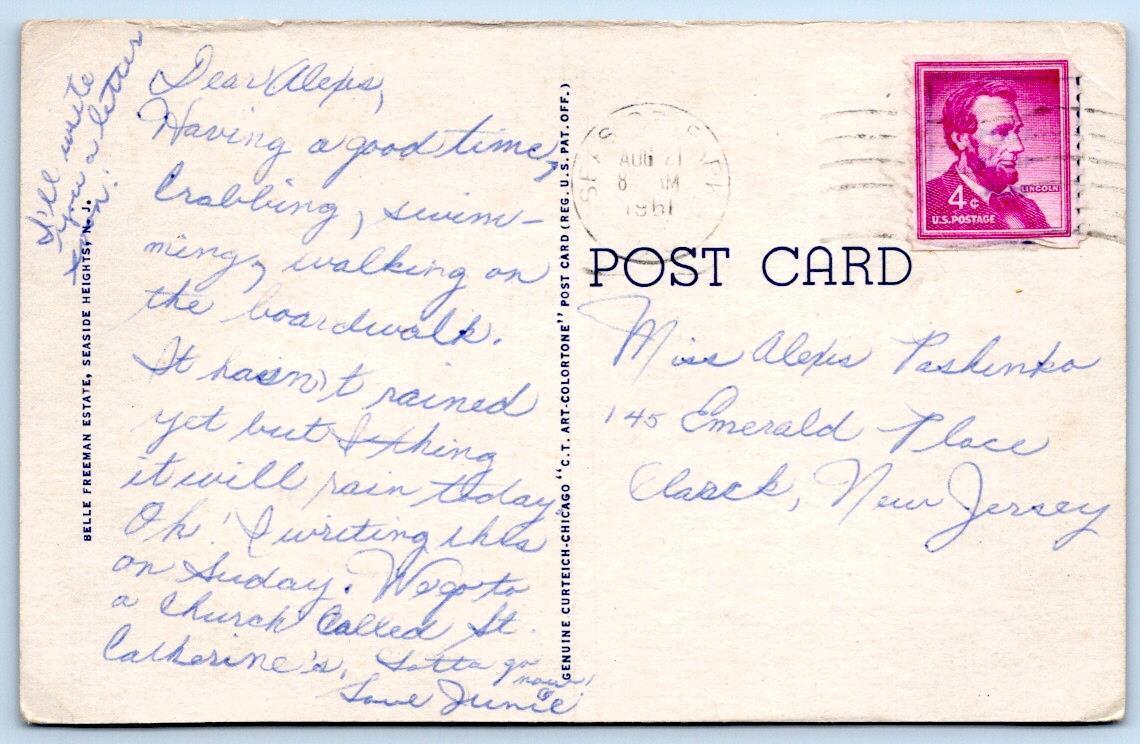 I'll write
you a letter
too!
Dear Alexis,
Having a good time,
Crabbing, swim-
ming, walking on
the boardwalk.
It hasn't rained
yet but I thing
it will rain today.
Oh! I writing this
on Suday. We go to
a church called St.
Catherine's. Gotta go
now!
Love Junie
BELLE FREEMAN ESTATE, SEASIDE HEIGHTS, N. J.
GENUINE CURTEICH-CHICAGO "C.T. ART-COLORTONE" POST CARD (REG. U.S. PAT. OFF.)
AUG 21
8 AM
1961
4¢
LINCOLN
U.S. POSTAGE
POST CARD
Miss Alexis Pashenko
145 Emerald Place
Clarck, New Jersey